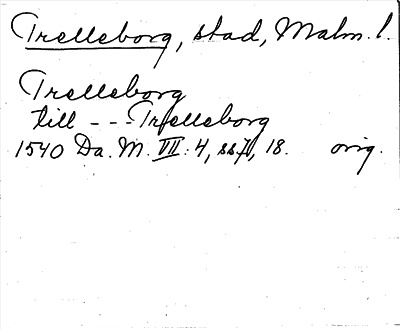 Trelleborg, stad, Malm. l.
Trelleborg
till - - - Trelleborg
1540 Da. M. VII: 4, 18. orig.